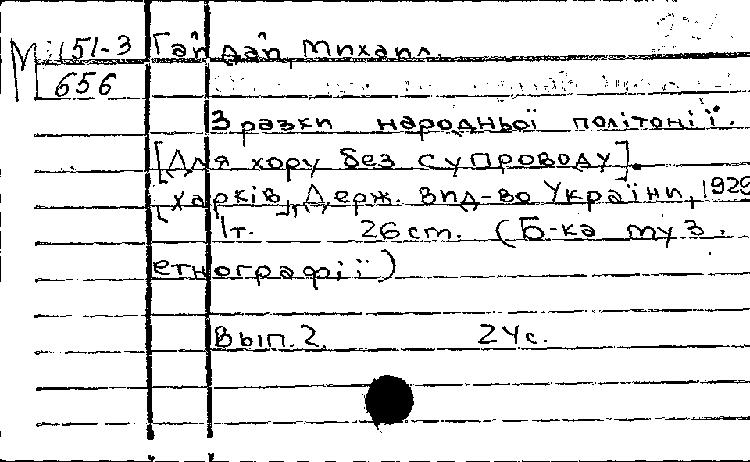 М 151-3 Гайдай, Михайл.
656
Зразки народньої політонії.
[Для хору без супроводу].
[Харків], Держ. вид-во України, 1929
1т. 26 ст. (Б-ка муз.
етнографії)
Вып. 2. 24 с.